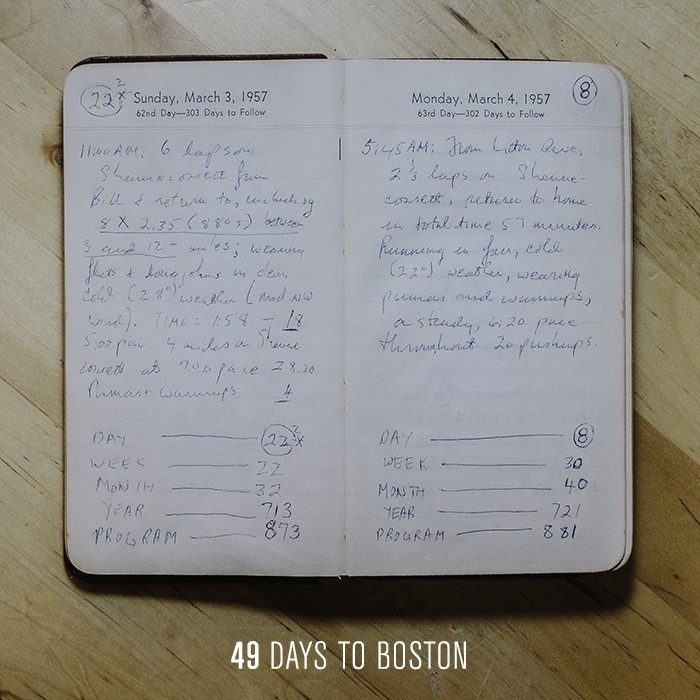 22 2x
Sunday, March 3, 1957
62nd Day—303 Days to Follow
11:00 AM. 6 laps on
from
Bill & return to, including
8 X 2.35 (880s) between
3 and 12+ miles; wearing
flats & longjohns in clear,
cold (28°) weather (mod NW
wind). TIME = 1:58 — 18
5:00 pm 4 miles on
at 7:00 pace 28:20
Pumas + warmups 4
DAY 22 2x
WEEK 22
MONTH 32
YEAR 713
PROGRAM 873
8
Monday, March 4, 1957
63rd Day—302 Days to Follow
5:45 AM: From
2 1/3 laps on Shawme-
consett, return to home
in total time 57 minutes.
Running in fair, cold
(22°) weather, wearing
pumas and warmups,
a steady, 6:20 pace
throughout. 20 pushups.
DAY 8
WEEK 30
MONTH 40
YEAR 721
PROGRAM 881
49 DAYS TO BOSTON